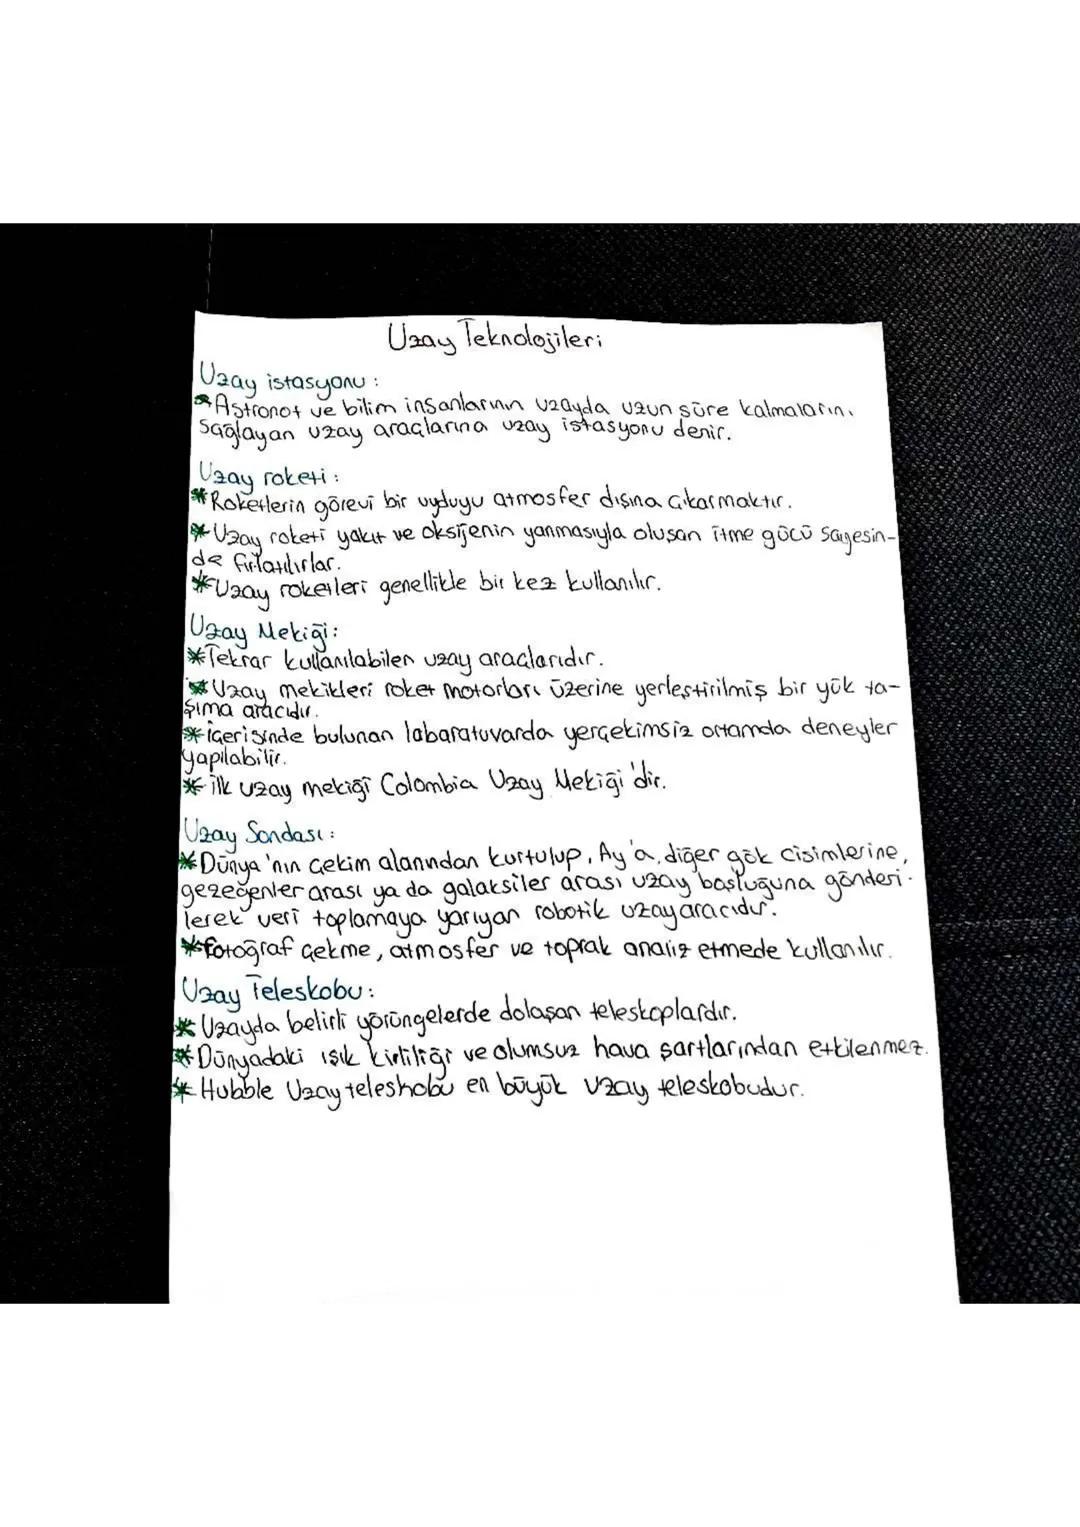 Uzay Teknolojileri
Uzay istasyonu:
*Astronot ve bilim insanlarının uzayda uzun süre kalmalarını
sağlayan uzay araçlarına uzay istasyonu denir.
Uzay roketi:
*Roketlerin görevi bir uyduyu atmosfer dışına çıkarmaktır.
*Uzay roketi yakıt ve oksijenin yanmasıyla oluşan itme gücü sayesin-
de fırlatılırlar.
*Uzay roketleri genellikle bir kez kullanılır.
Uzay Mekiği:
*Tekrar kullanılabilen uzay araçlarıdır.
*Uzay mekikleri roket motorları üzerine yerleştirilmiş bir yük ta-
şıma aracıdır.
*içerisinde bulunan labaratuvarda yerçekimsiz ortamda deneyler
yapılabilir.
*ilk uzay mekiği Colombia Uzay Mekiği'dir.
Uzay Sondası:
*Dünya'nın çekim alanından kurtulup, Ay'a, diğer gök cisimlerine,
gezegenler arası ya da galaksiler arası uzay boşluğuna gönderi-
lerek veri toplamaya yarıyan robotik uzay aracıdır.
*Fotoğraf çekme, atmosfer ve toprak analiz etmede kullanılır.
Uzay Teleskobu:
*Uzayda belirli yörüngelerde dolaşan teleskoplardır.
*Dünyadaki ışık kirliliği ve olumsuz hava şartlarından etkilenmez.
*Hubble Uzay teleskobu en büyük uzay teleskobudur.